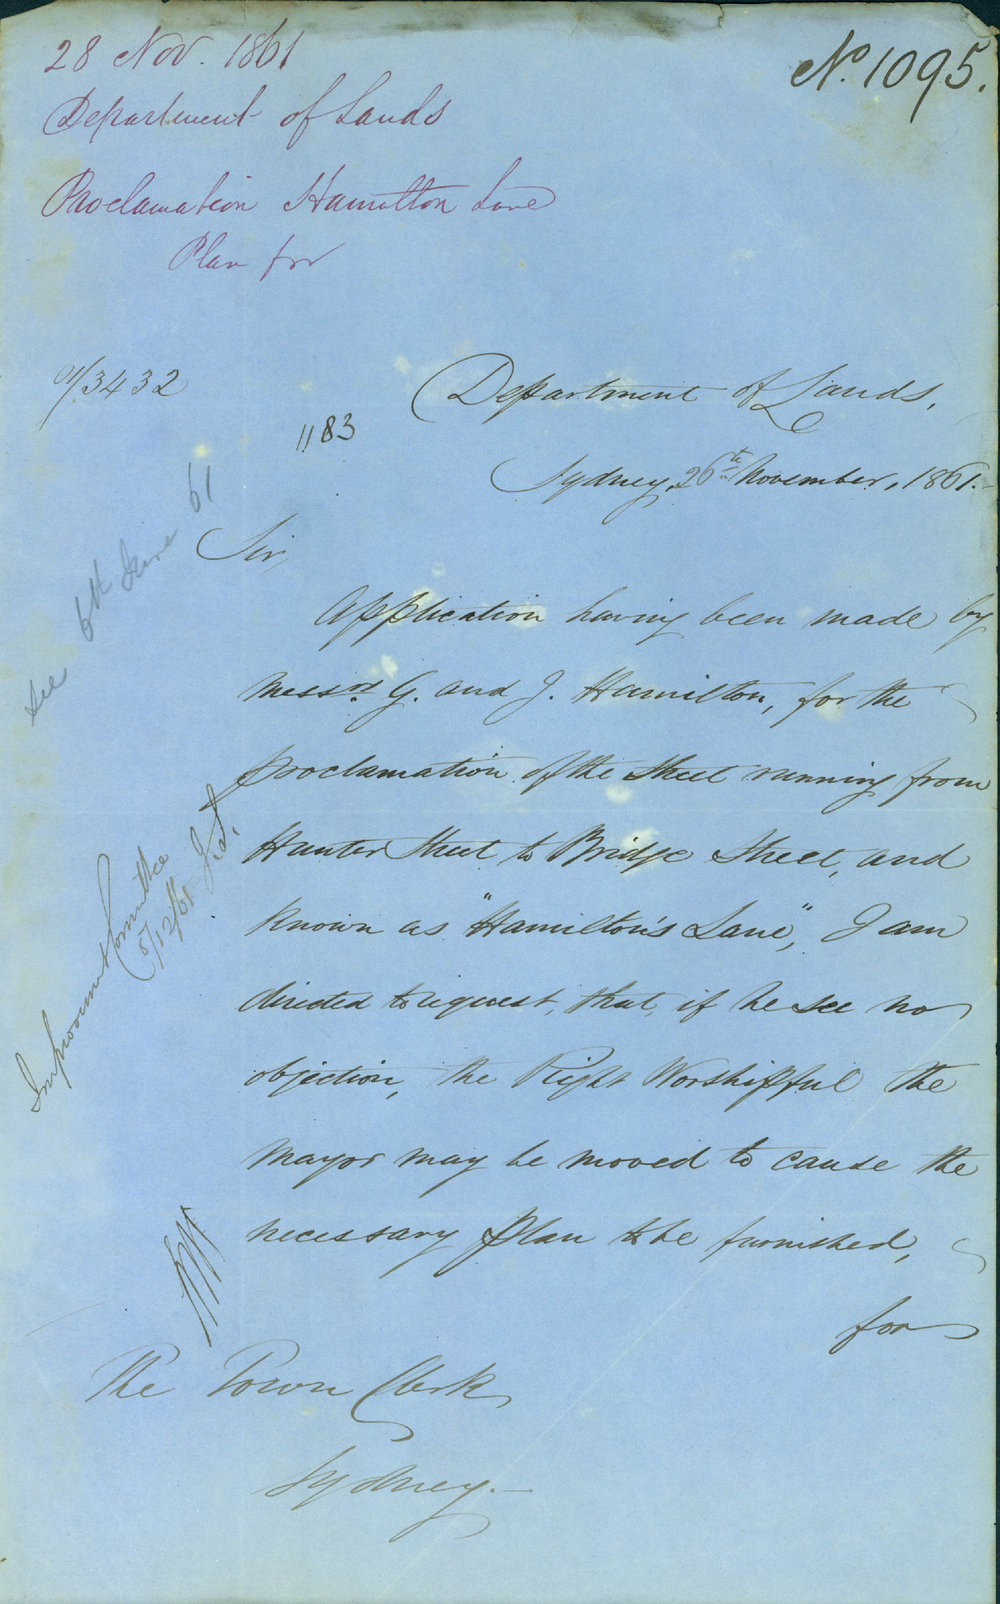 28 Nov. 1861
No. 1095.
Department of Lands
Proclamation Hamilton Lane
Plan for
61/3432
1183
Department of Lands,
Sydney, 26th November, 1861.
Sir,
Application having been made by
Messrs G. and J. Hamilton, for the
proclamation of the Street running from
Hunter Street to Bridge Street, and
known as "Hamilton's Lane", I am
directed to request, that, if he see no
objection, the Right Worshipful the
Mayor may be moved to cause the
necessary plan to be furnished,
for
The Town Clerk
Sydney.
see 6th June 61
Improvement Committee
5/12/61